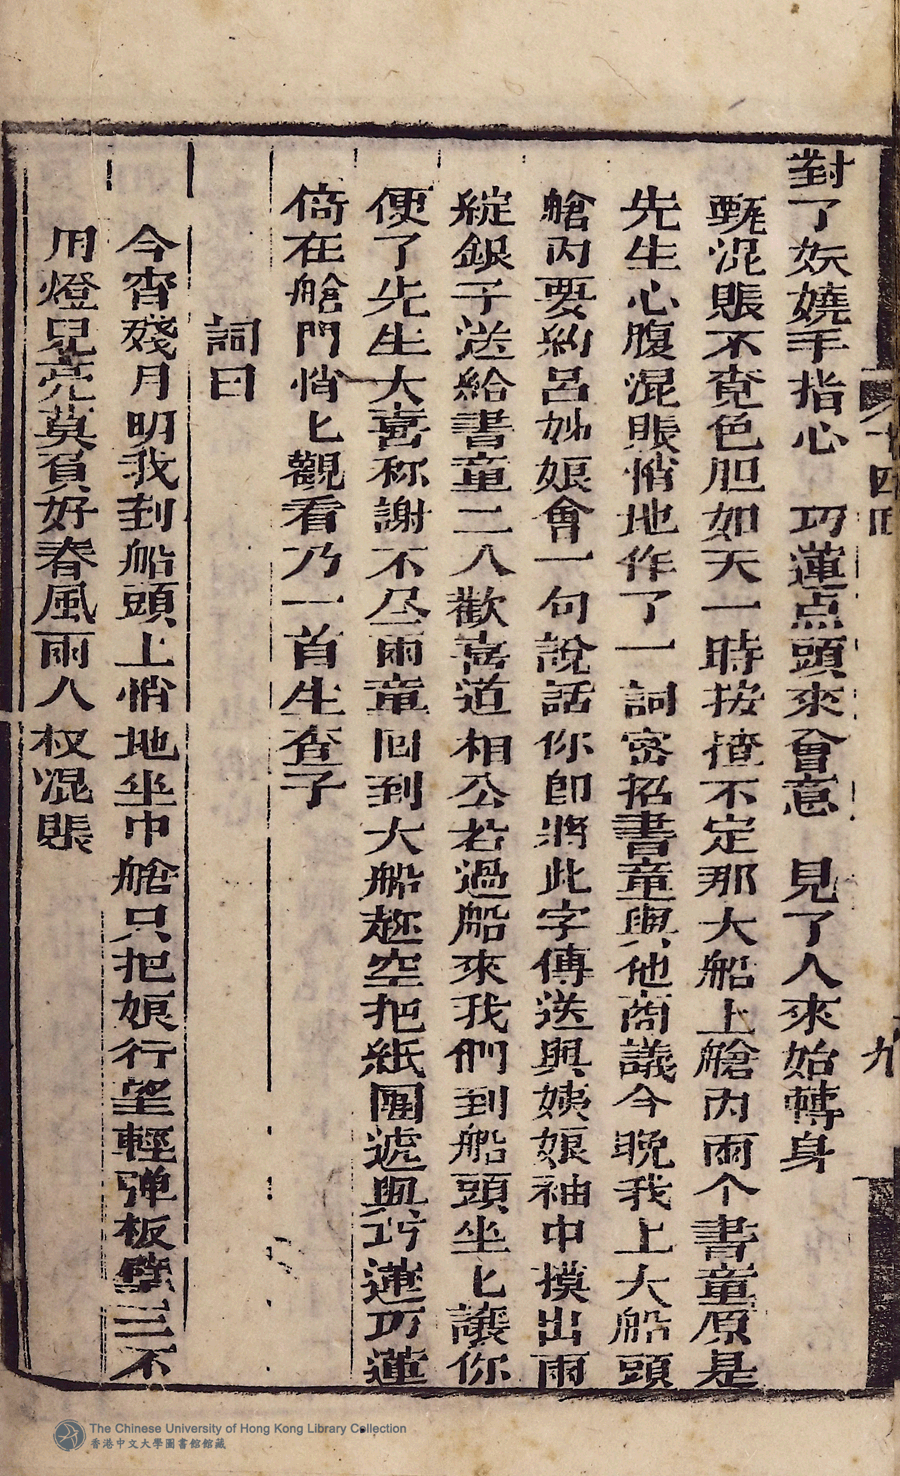 對了妖嬈手指心　巧蓮点頭來會意　見了人來始轉身
甄混賬不覔色胆如天一時按捺不定那大船上艙内兩个書童原是
先生心腹混賬悄地作了一詞密招書童與他商議今晚我上大船頭
艙内要約呂姊娘會一句說話你即將此字傳送與姨娘袖中摸出兩
綻銀子送給書童二人歡喜道相公若過船來我們到船頭坐匕讓你
便了先生大喜称謝不尽兩童囘到大船趂空把紙團遞與巧蓮巧蓮
倚在艙門悄匕觀看乃一首生查子
詞曰
今宵殘月明我到船頭上悄地坐巾艙只把娘行望輕弹板壁三不
用燈兒亮莫負好春風雨人 混賬
十四囘
九
The Chinese University of Hong Kong Library Collection
香港中文大學圖書館館藏